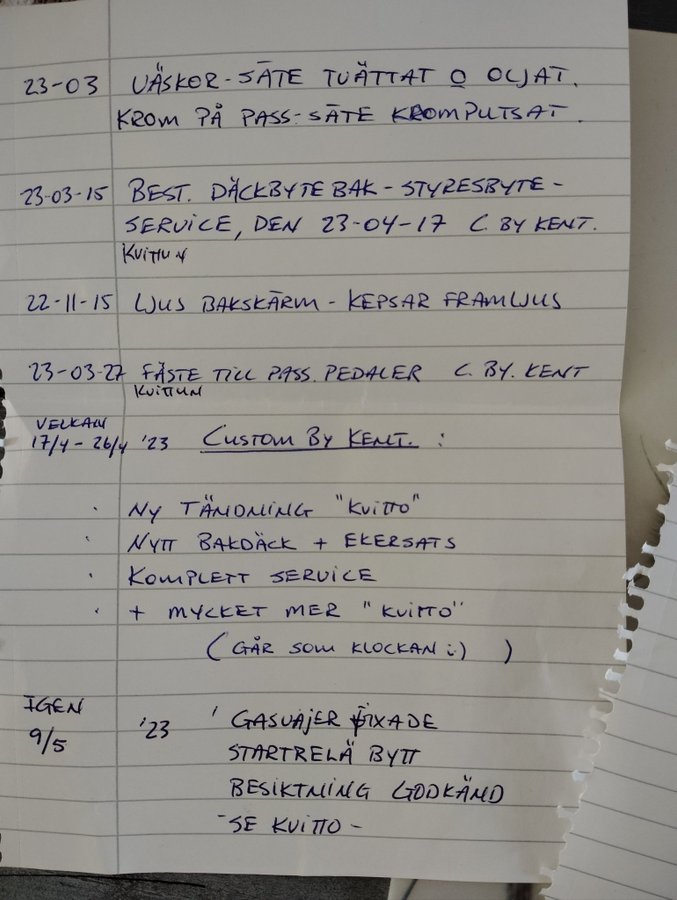 23-03 VÄSKOR-SÄTE TVÄTTAT O OLJAT.
KROM PÅ PASS-SÄTE KROMPUTSAT.
23-03-15 BEST. DÄCKBYTE BAK - STYRESBYTE -
SERVICE, DEN 23-04-17 C. BY KENT.
KVITTUN
22-11-15 LJUS BAKSKÄRM - KEPSAR FRAMLJUS
23-03-27 FÄSTE TILL PASS. PEDALER C. BY. KENT
KVITTUN
VECKAN
17/4 - 26/4 '23 CUSTOM BY KENT. :
· NY TÄNDNING "KVITTO"
· NYTT BAKDÄCK + EKERSATS
· KOMPLETT SERVICE
· + MYCKET MER "KVITTO"
(GÅR SOM KLOCKAN :) )
IGEN
9/5 '23 ' GASVAJER FIXADE
STARTRELÄ BYTT
BESIKTNING GODKÄND
-SE KVITTO-